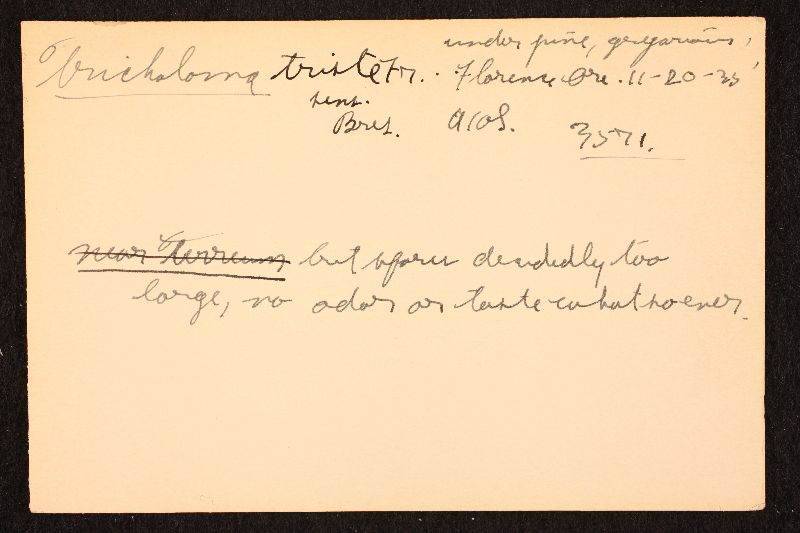 under pine, gregarious,
Tricholoma triste Fr. . Florence Ore. 11-20-35
sens.
Bres. AHS. 3571.
near terreum but spores decidedly too
large, no odor or taste whatsoever.